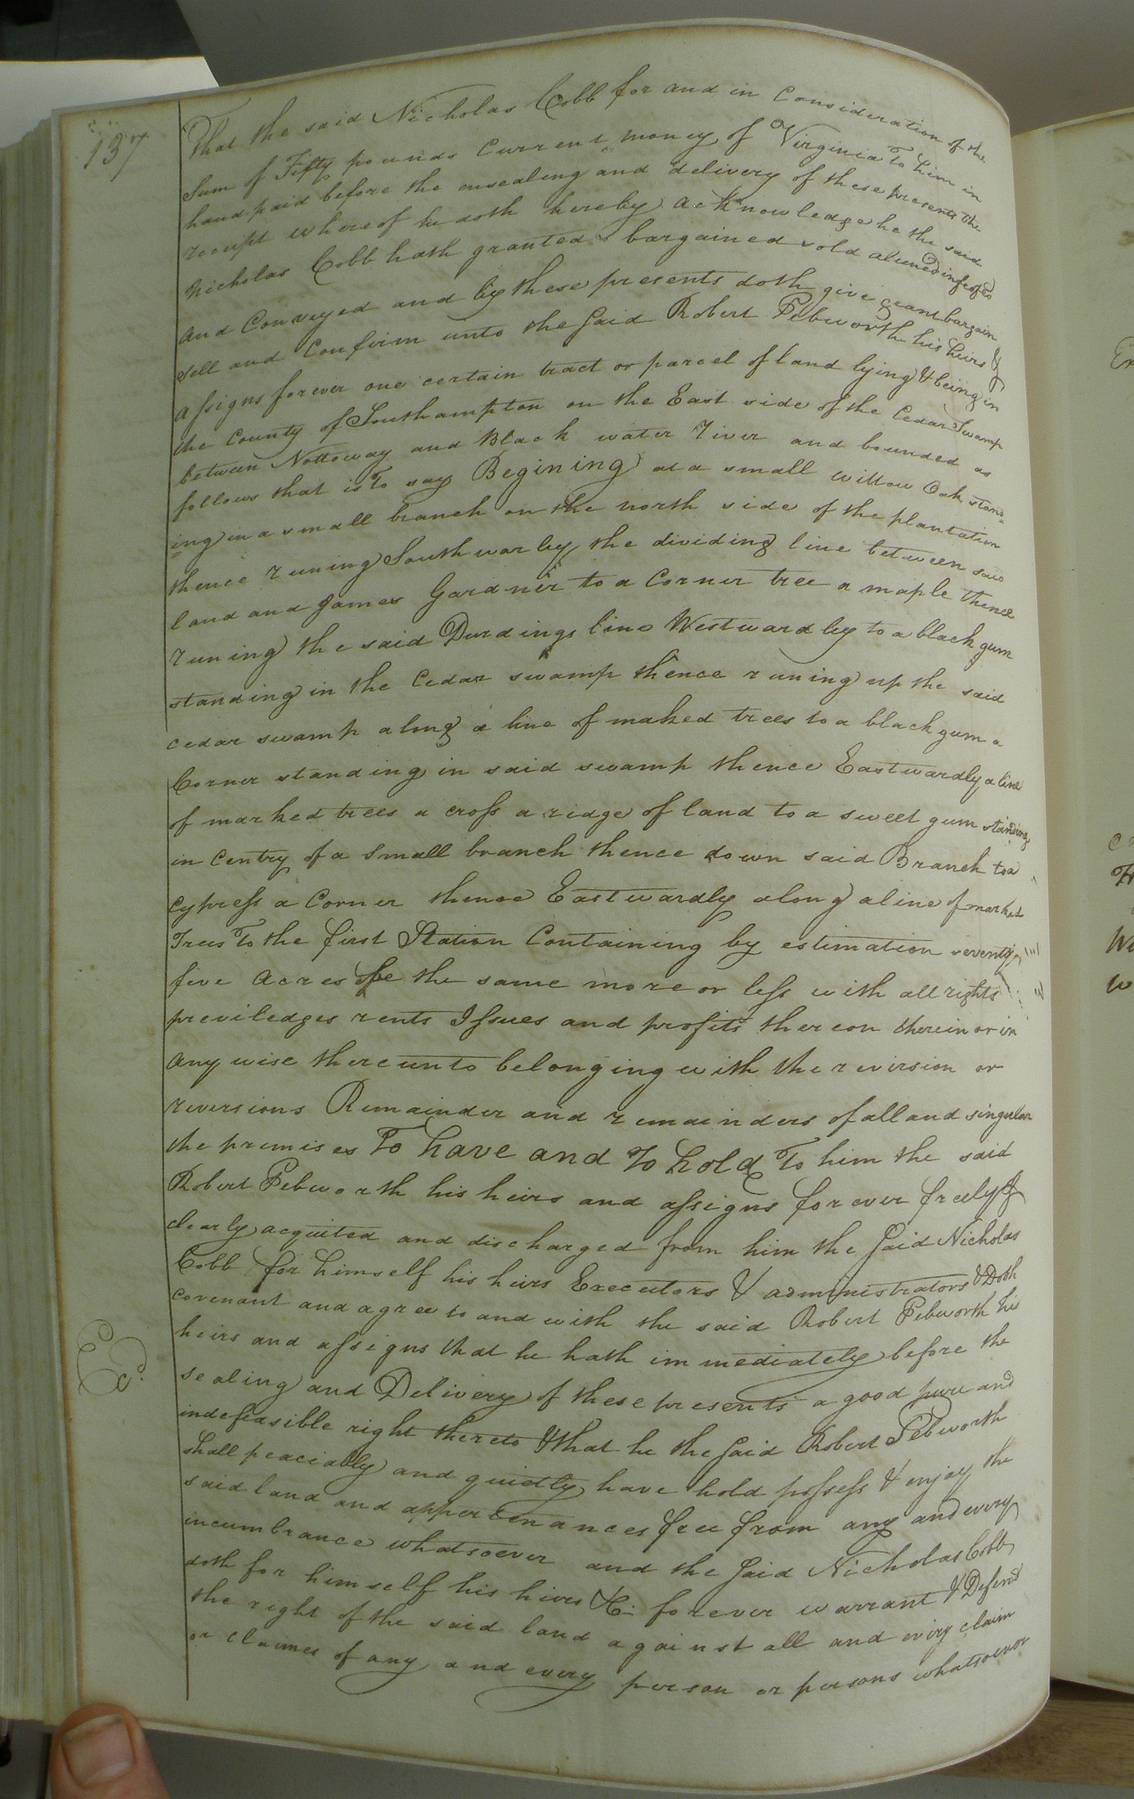 137
That the said Nicholas Cobb for and in Consideration of the
Sum of Fifty pounds Current money of Virginia To him in
hand paid before the ensealing and delivery of these presents the
receipt whereof he doth hereby acknowledge he the said
Nicholas Cobb hath granted bargained sold aliened infeofed
and Conveyed and by these presents doth give grant bargain
sell and Confirm unto the said Robert Pebworth his heirs &
assigns forever one certain tract or parcel of land lying & being in
the County of Southampton on the East side of the Cedar Swamp
between Nottoway and Black water River and bounded as
follows that is To say Begining at a small willow Oak stand=
=ing in a small branch on the north side of the plantation
thence runing Southwar by the dividing line between said
land and James Gardner to a Corner tree a maple thence
runing the said Durdings line Westwardly to a black gum
standing in the Cedar swamp thence runing up the said
cedar swamp along a line of maked trees to a black gum a
Corner standing in said swamp thence Eastwardly a line
of marked trees a cross a ridge of land to a sweet gum standing
in Centry of a small branch thence down said Branch to a
Cypress a Corner thence Eastwardly along a line of marked
Trees To the first Station Containing by estimation seventy
five acres be the same more or less with all rights
previledges rents Issues and profits thereon therein or in
any wise thereunto belonging with the reversion or
reversions Remainder and remainders of all and singular
the premises To have and To hold To him the said
Robert Pebworth his heirs and assigns forever freely &
clearly acquited and discharged from him the said Nicholas
Cobb for himself his heirs Executors & administrators & Doth
covenant and agree to and with the said Robert Pebworth his
heirs and assigns that he hath immediately before the
sealing and Delivery of these presents a good pure and
indefeasible right thereto & that he the said Robert Pebworth
shall peaciably and quietly have hold possess & enjoy the
said land and appertenances free from any and every
incumbrance whatsoever and the said Nicholas Cobb
doth for himself his hiers &c. forever warrant & Defend
the right of the said land against all and every claim
or claimes of any and every person or persons whatsoever